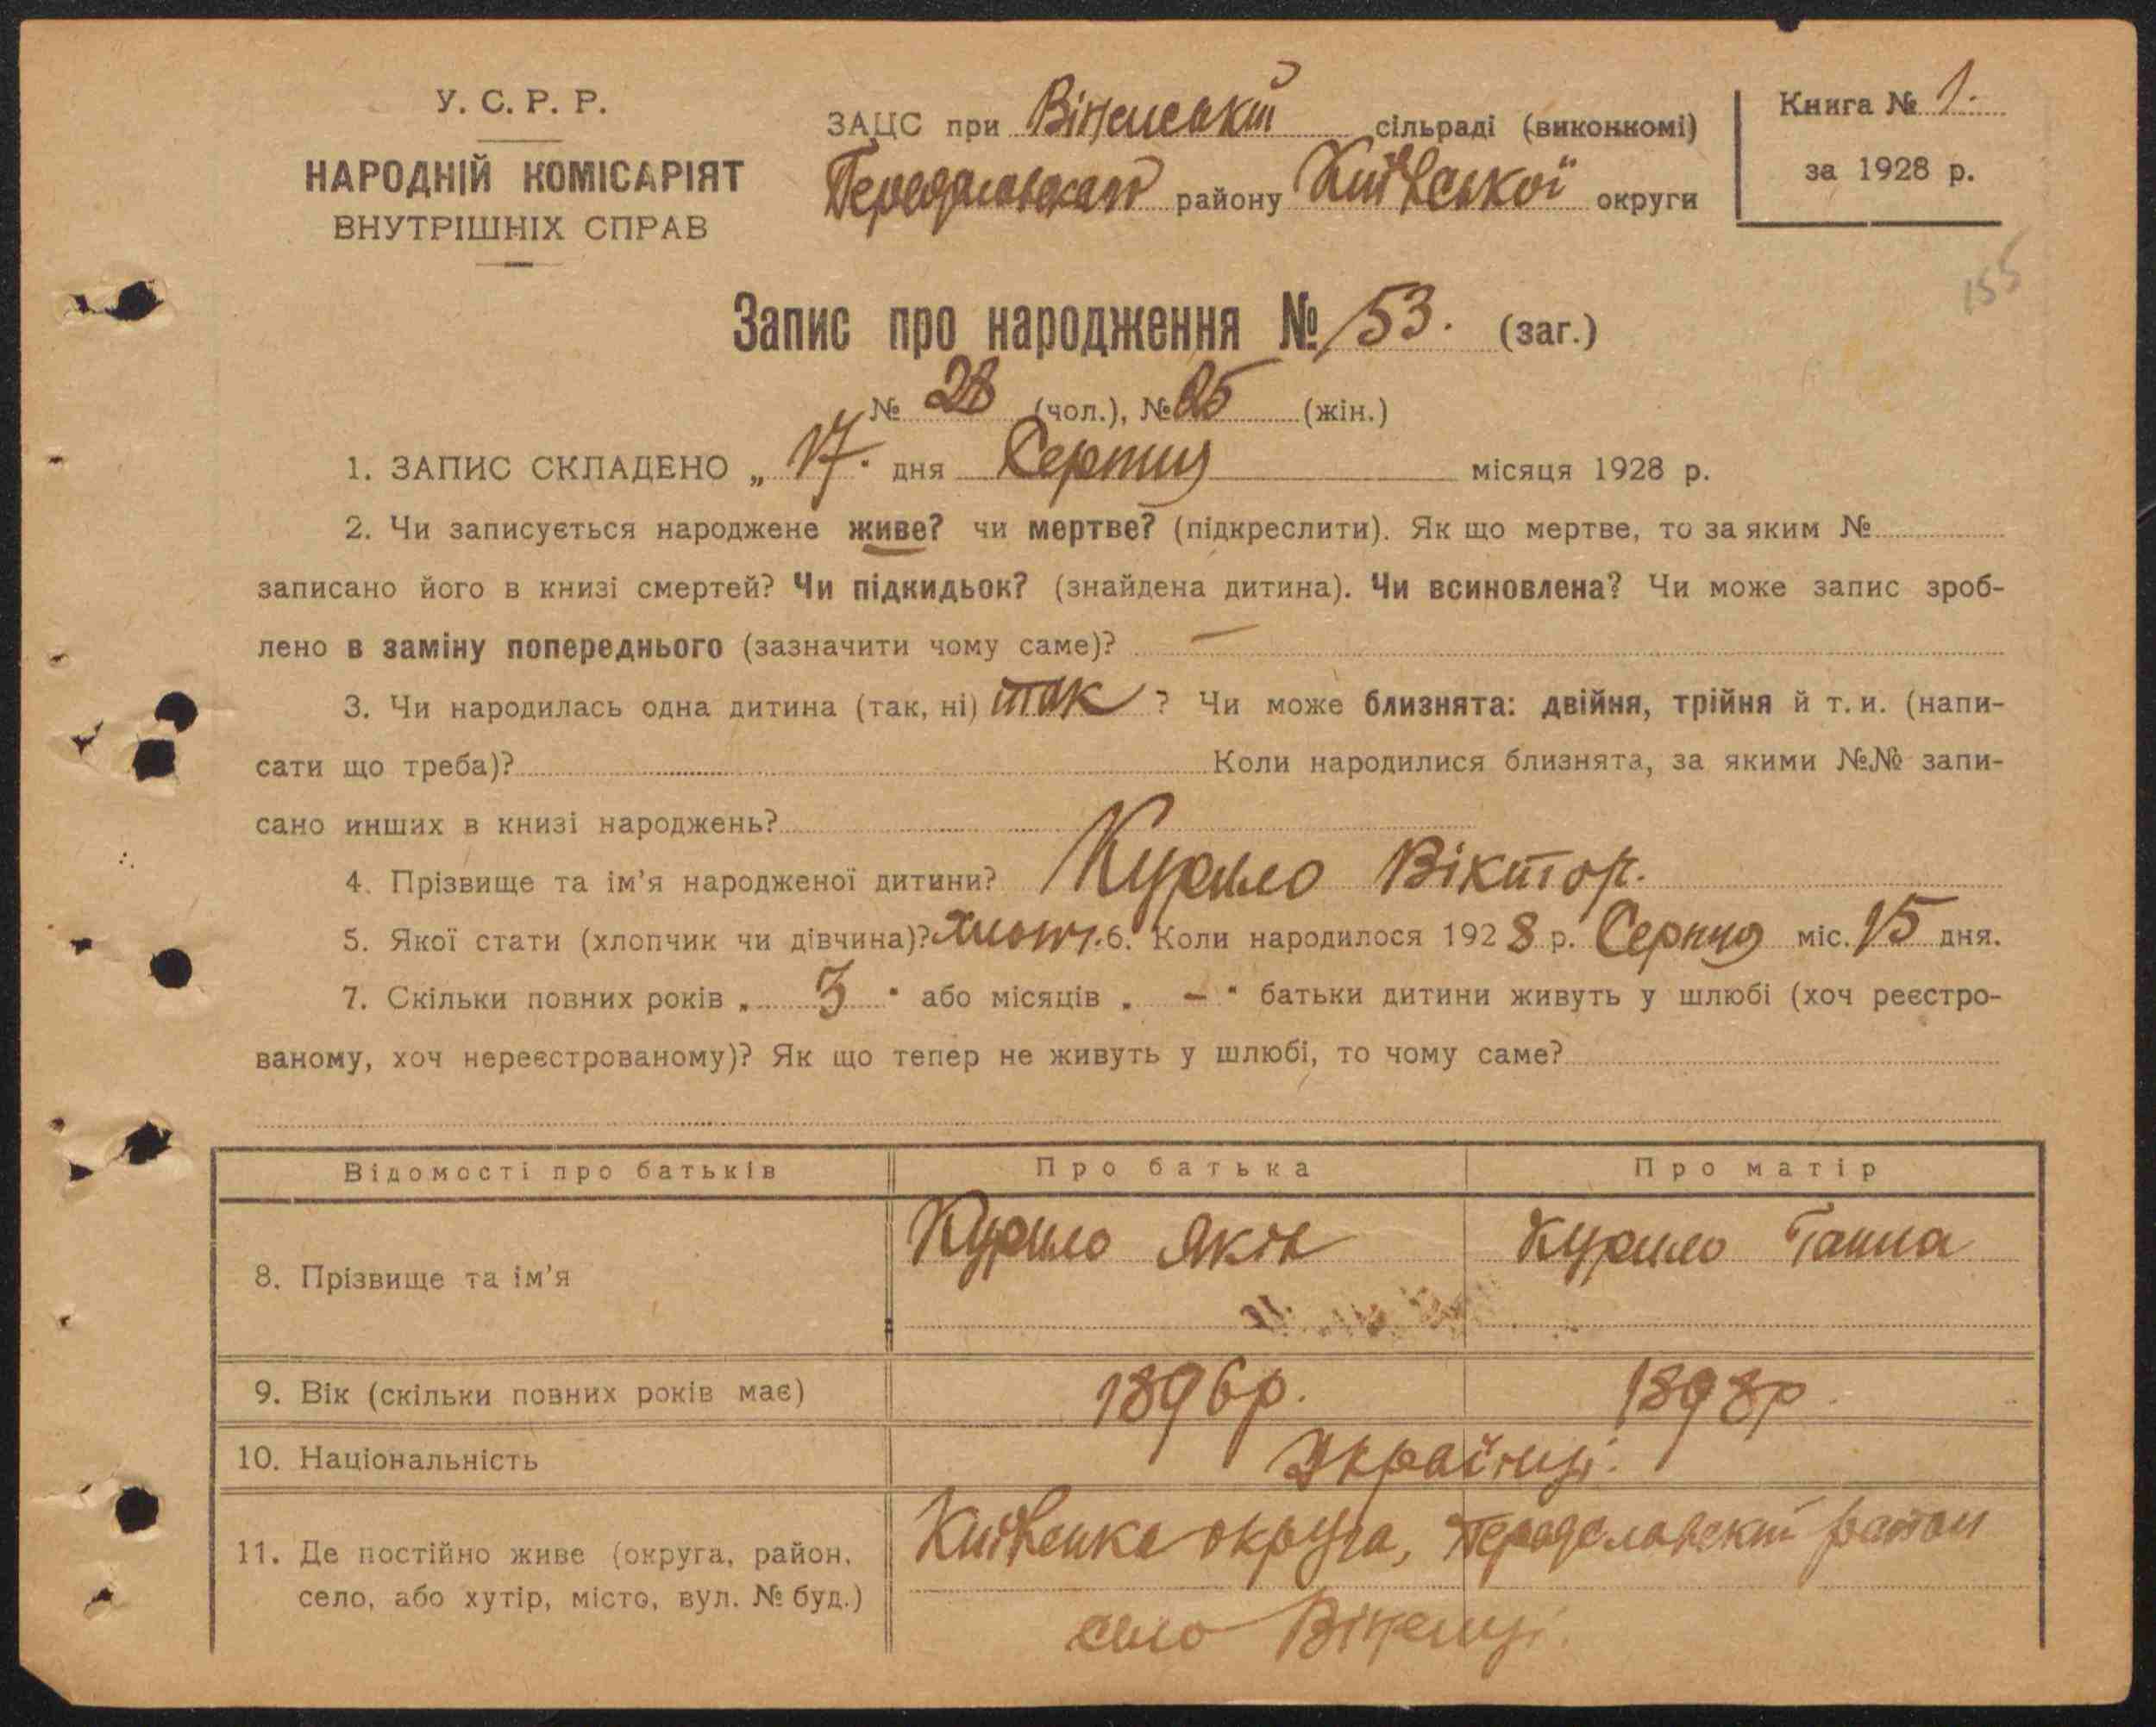 У. С. Р. Р.
НАРОДНІЙ КОМІСАРІЯТ
ВНУТРІШНІХ СПРАВ
ЗАЦС при сільраді (виконкомі)
району Київської округи
Книга № 1.
за 1928 р.
155
Запис про народження № 53. (заг.)
№ 28 (чол.), № 25 (жін.)
1. ЗАПИС СКЛАДЕНО „ 17. дня Серпня місяця 1928 р.
2. Чи записується народжене живе? чи мертве? (підкреслити). Як що мертве, то за яким №
записано його в книзі смертей? Чи підкидьок? (знайдена дитина). Чи всиновлена? Чи може запис зроб-
лено в заміну попереднього (зазначити чому саме)? —
3. Чи народилась одна дитина (так, ні) так ? Чи може близнята: двійня, трійня й т. и. (напи-
сати що треба)? Коли народилися близнята, за якими №№ запи-
сано инших в книзі народжень?
4. Прізвище та ім’я народженої дитини? Курило Віктор.
5. Якої стати (хлопчик чи дівчина)? хлопч. 6. Коли народилося 1928 р. Серпня міс. 15 дня.
7. Скільки повних років „ 3 " або місяців „ – " батьки дитини живуть у шлюбі (хоч реєстро-
ваному, хоч нереєстрованому)? Як що тепер не живуть у шлюбі, то чому саме?
Відомості про батьків Про батька Про матір
8. Прізвище та ім’я Курило Яків Курило Ганна
9. Вік (скільки повних років має) 1896р. 1898р.
10. Національність Українці.
11. Де постійно живе (округа, район, Київська округа, район
село, або хутір, місто, вул. № буд.) село